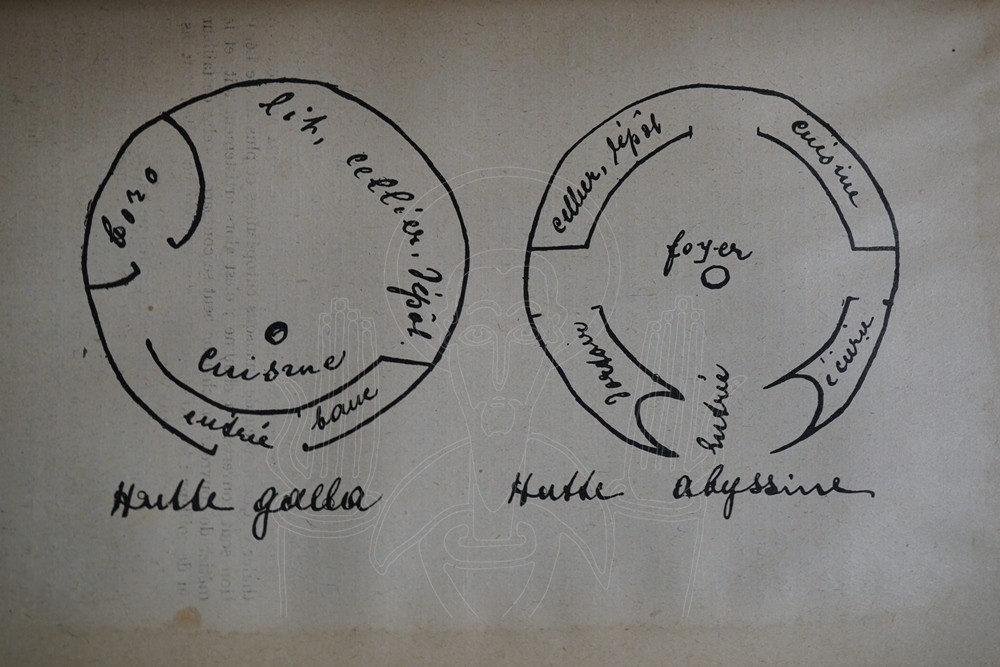 lit, cellier, dépôt
Cuisine
entrée
banc
Hutte galla
cellier, dépôt
cuisine
foyer
écurie
entrée
Hutte abyssine